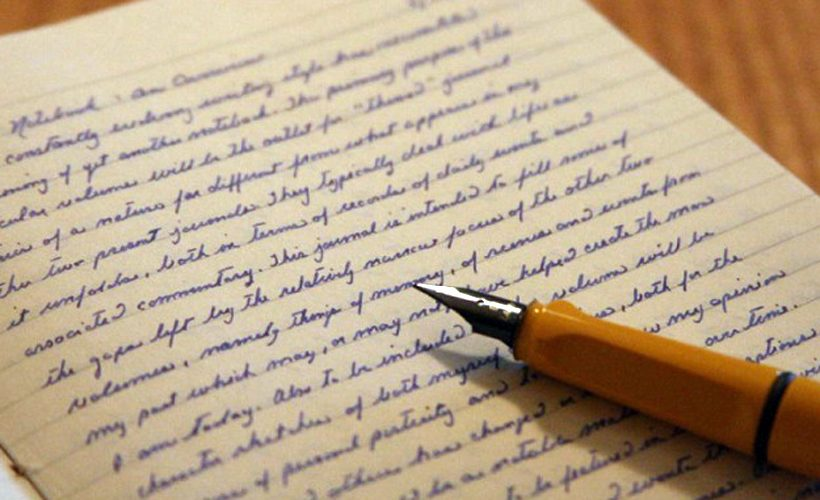 Notebook · An Overview
constantly evolving writing style has necessitated
of yet another notebook. The primary purpose of the
volumes will be the outlet for "themed" journal
of a nature far different from what appears in my
two present journals. They typically deal with life as
it unfolds, both in terms of records of daily events and
associated commentary. This journal is intended to fill some of
the gaps left by the relatively narrow focus of the other two
volumes, namely things of memory, of scenes and events from
my past which may, or may not, have helped create the man
I am today. Also to be included volume will be
character sketches of both myself, both for the
of personal posterity and my opinion
others has changed over time.
be a notable
to be featured in